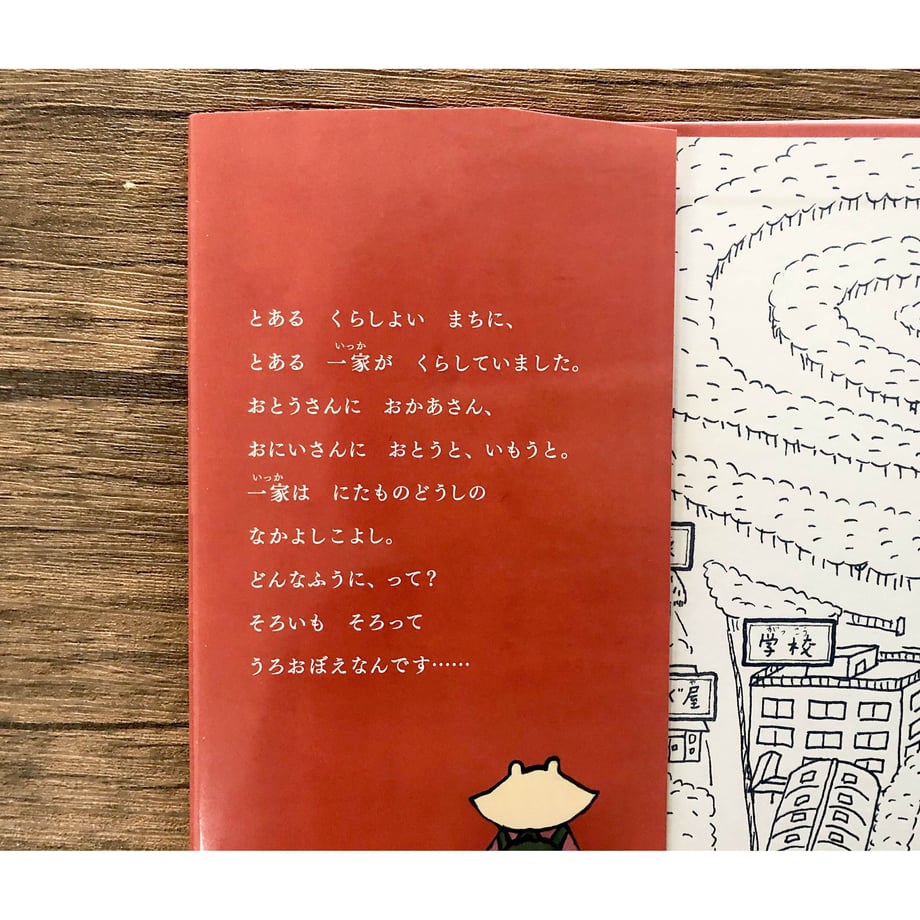 とある　くらしよい　まちに、
とある　一家が　くらしていました。
おとうさんに　おかあさん、
おにいさんに　おとうと、いもうと。
一家は　にたものどうしの
なかよしこよし。
どんなふうに、って？
そろいも　そろって
うろおぼえなんです……
学校
ぐ屋